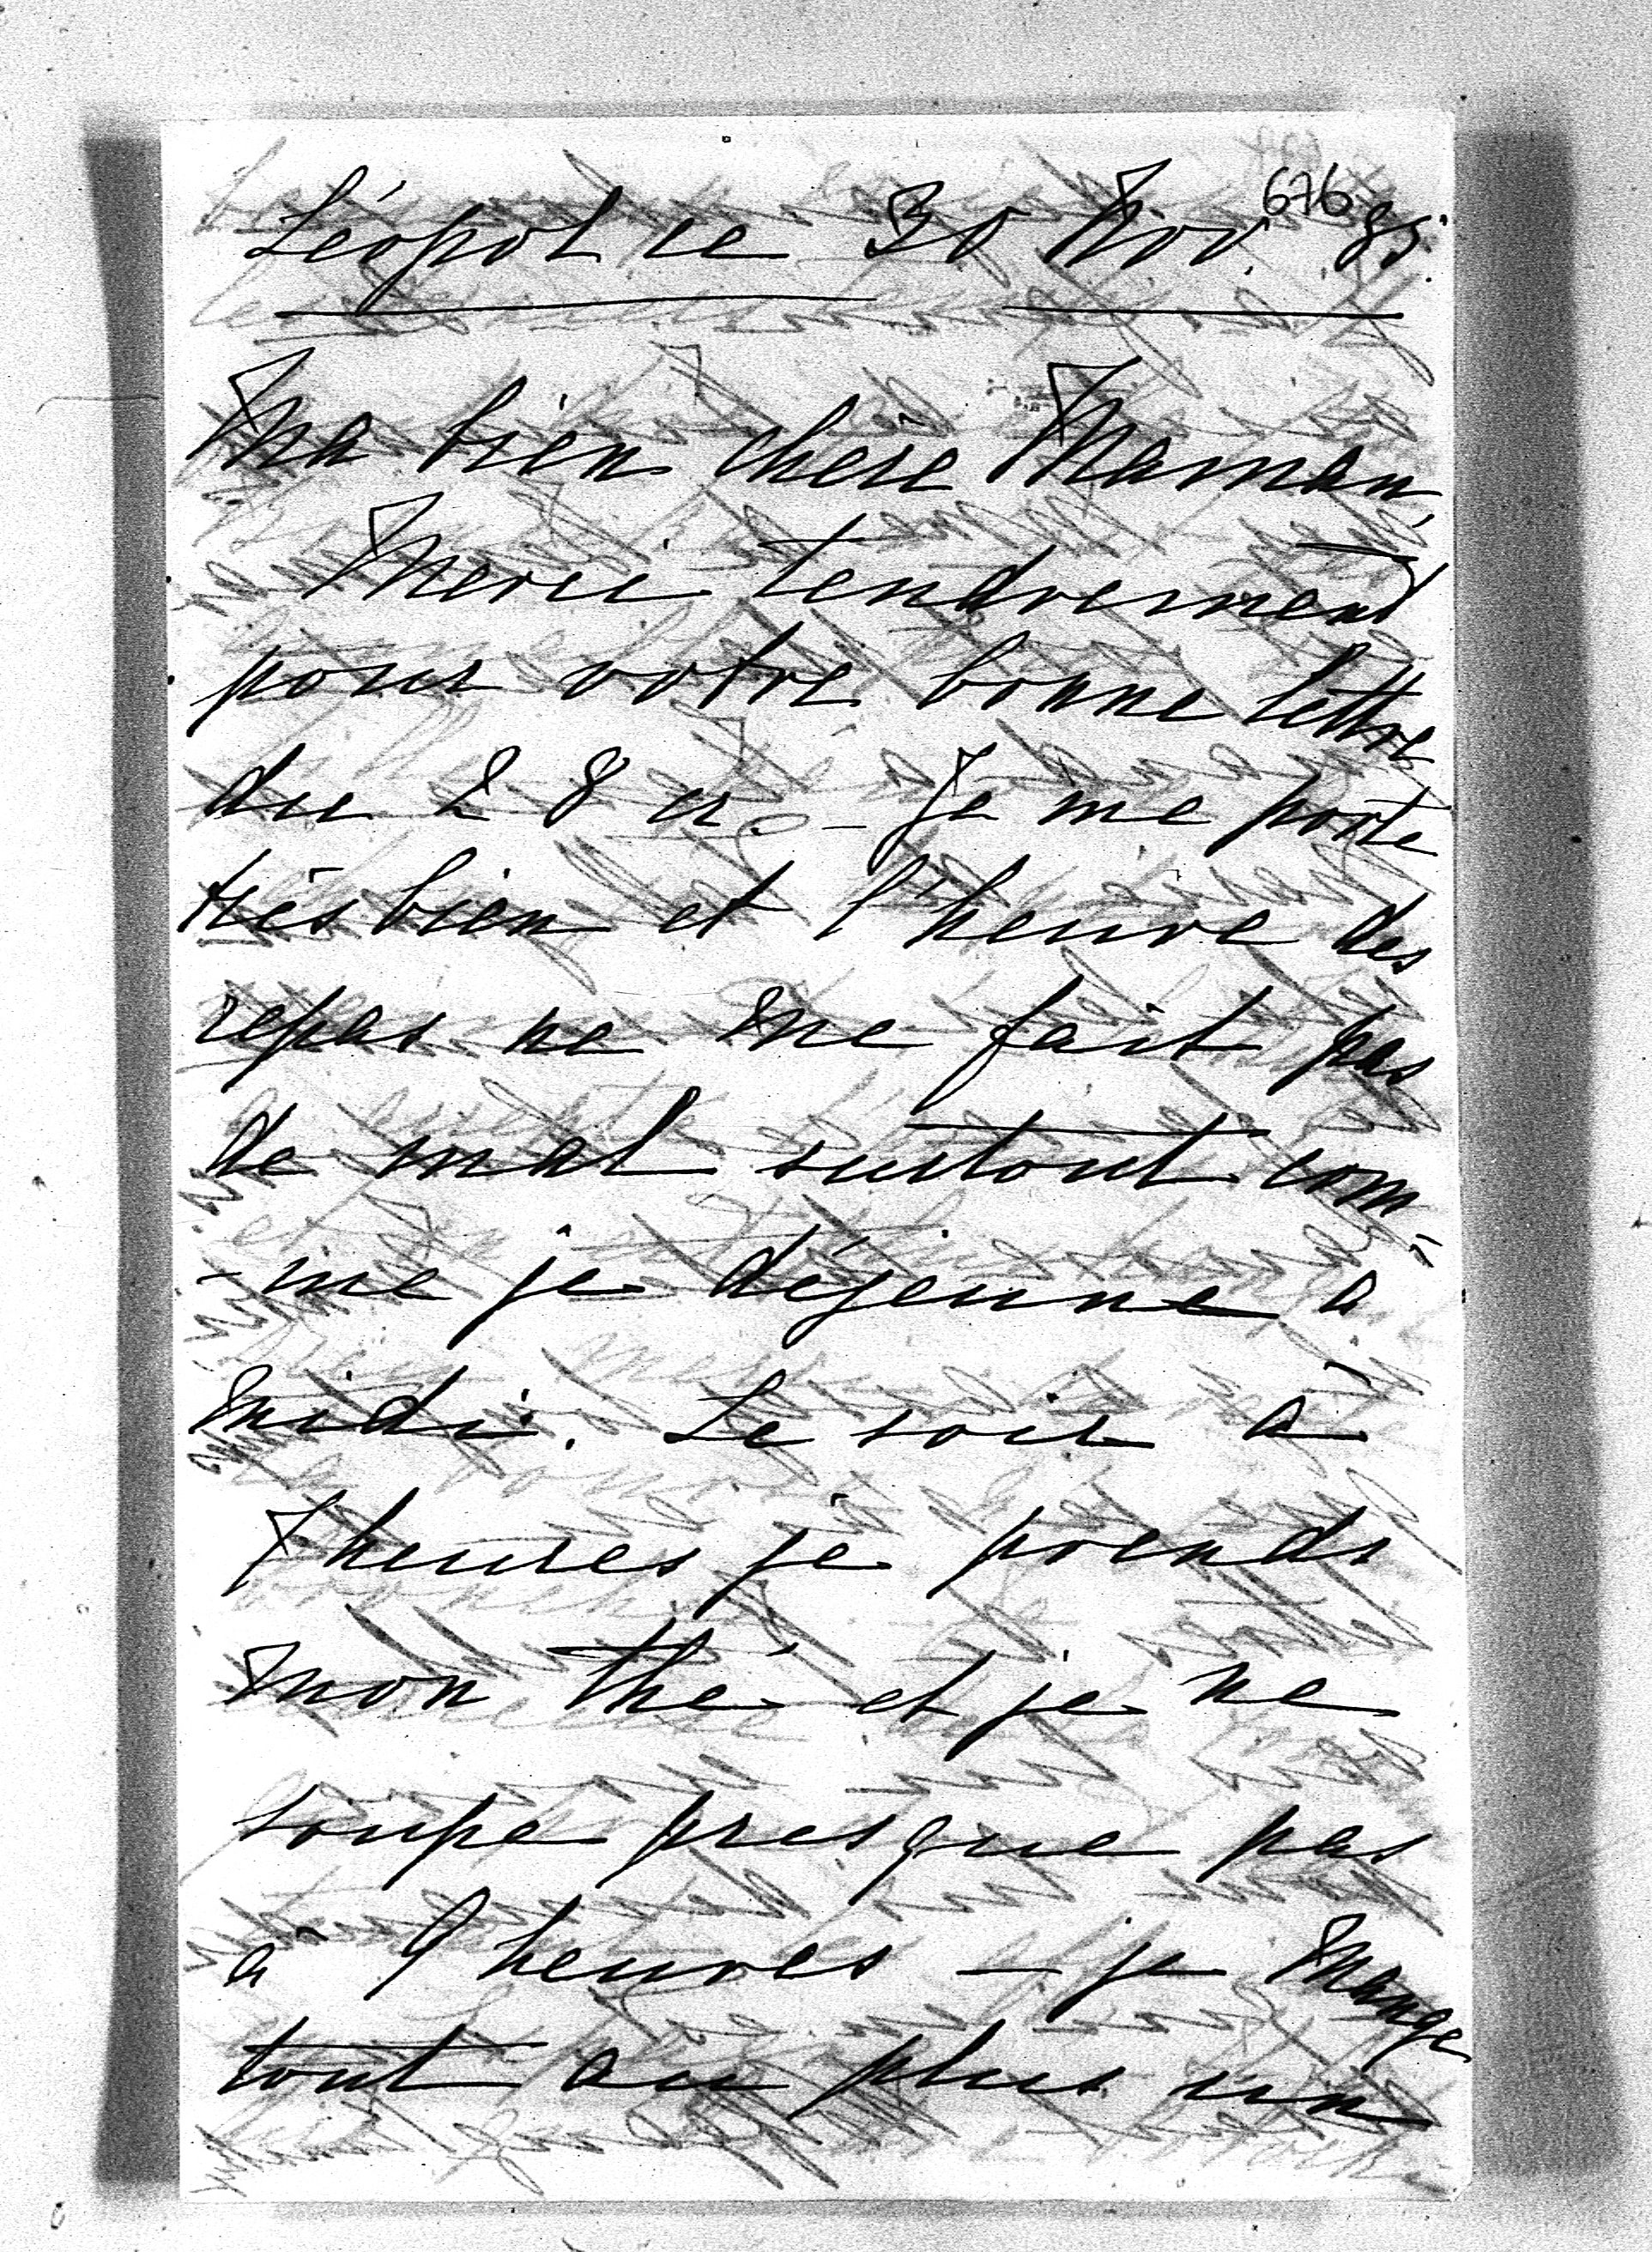 676
Léopol ce 30 Nov. 85.
Ma bien chère Maman,
Merci tendrement
pour votre bonne lettre
du 28 cr. – Je me porte
très bien et l'heure des
repas ne me fait pas
de mal surtout com-
-me je déjeune à
midi. Le soir à
7 heures je prends
mon thé et je ne
soupe presque pas
à 9 heures – je mange
tout au plus un